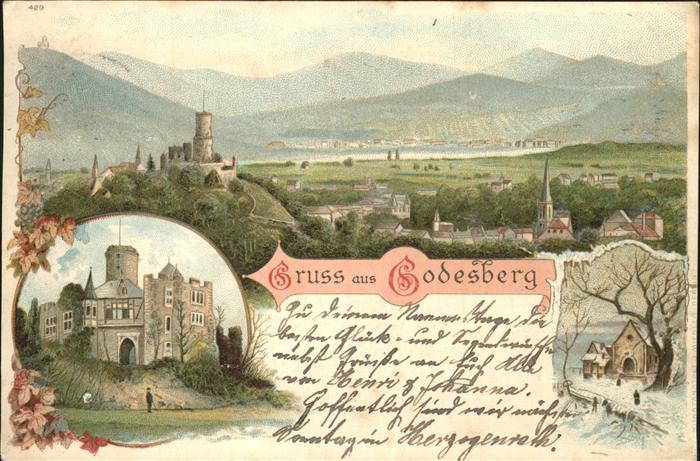 429
Gruss aus Godesberg
Zu deinem Namens-Tage die
besten Glück- und Segenswünsche
nebst Grüße an Euch Alle
von Henri & Johanna.
Hoffentlich sind wir nächsten
Sonntag in Herzogenrath.